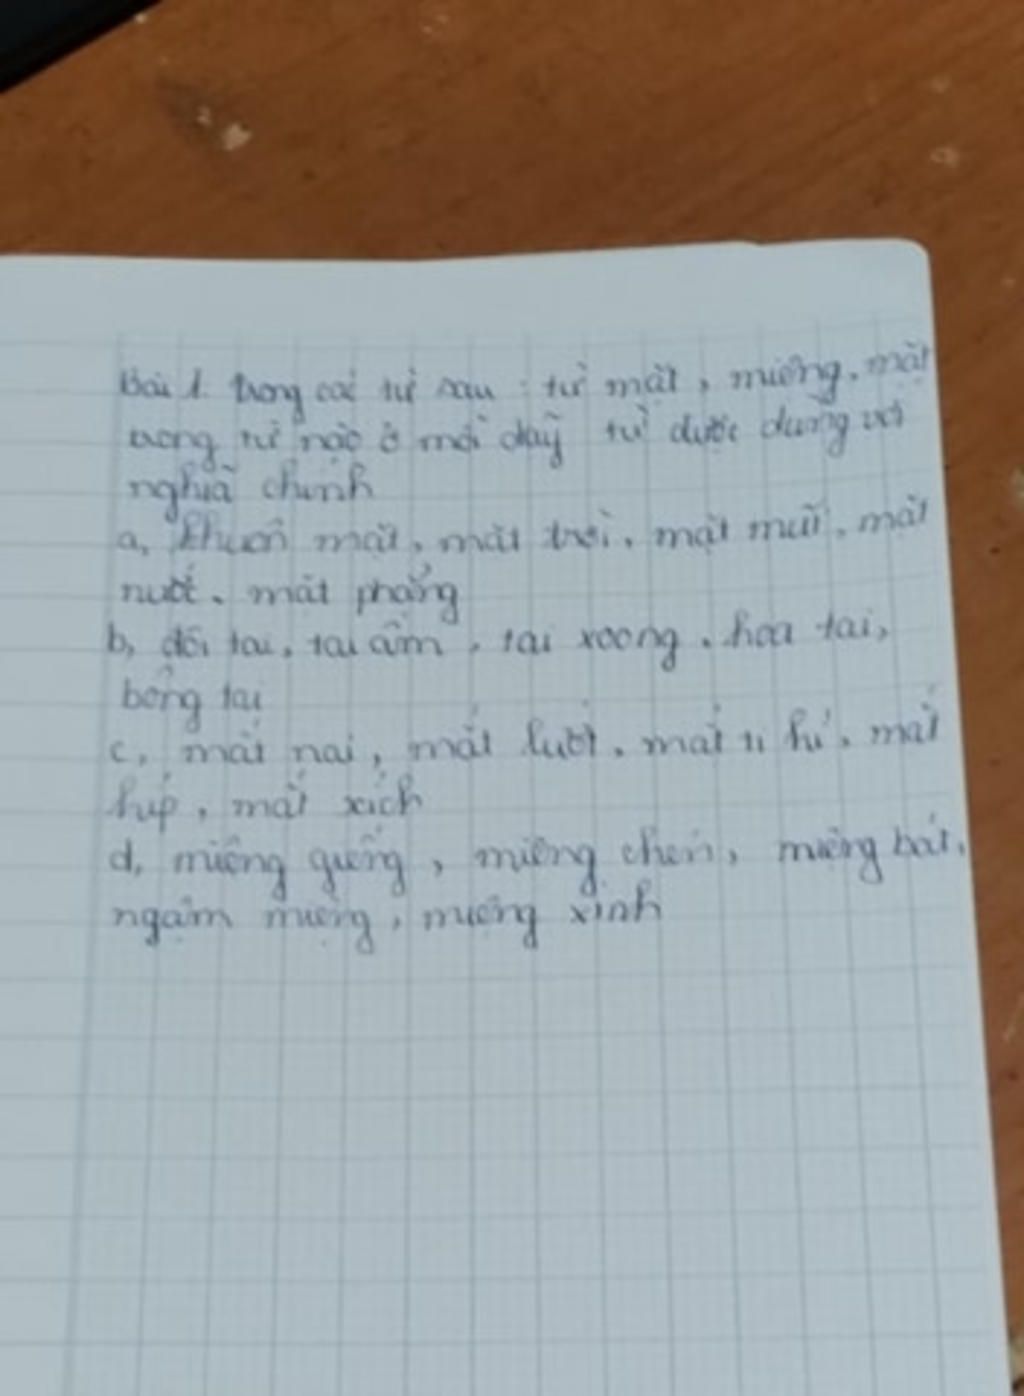 Bài 1. trong các từ sau : từ mặt, miệng, mắt
trong từ nào ở mỗi dãy từ được dùng với
nghĩa chính
a, khuôn mặt, mặt trời, mặt mũi, mặt
nước, mặt phẳng
b, đôi tai, tai ấm, tai xoong, hoa tai,
bông tai
c, mắt nai, mắt lưới, mắt ti hí, mắt
híp, mắt xích
d, miệng giếng, miệng chén, miệng bát,
ngậm miệng, miệng xinh